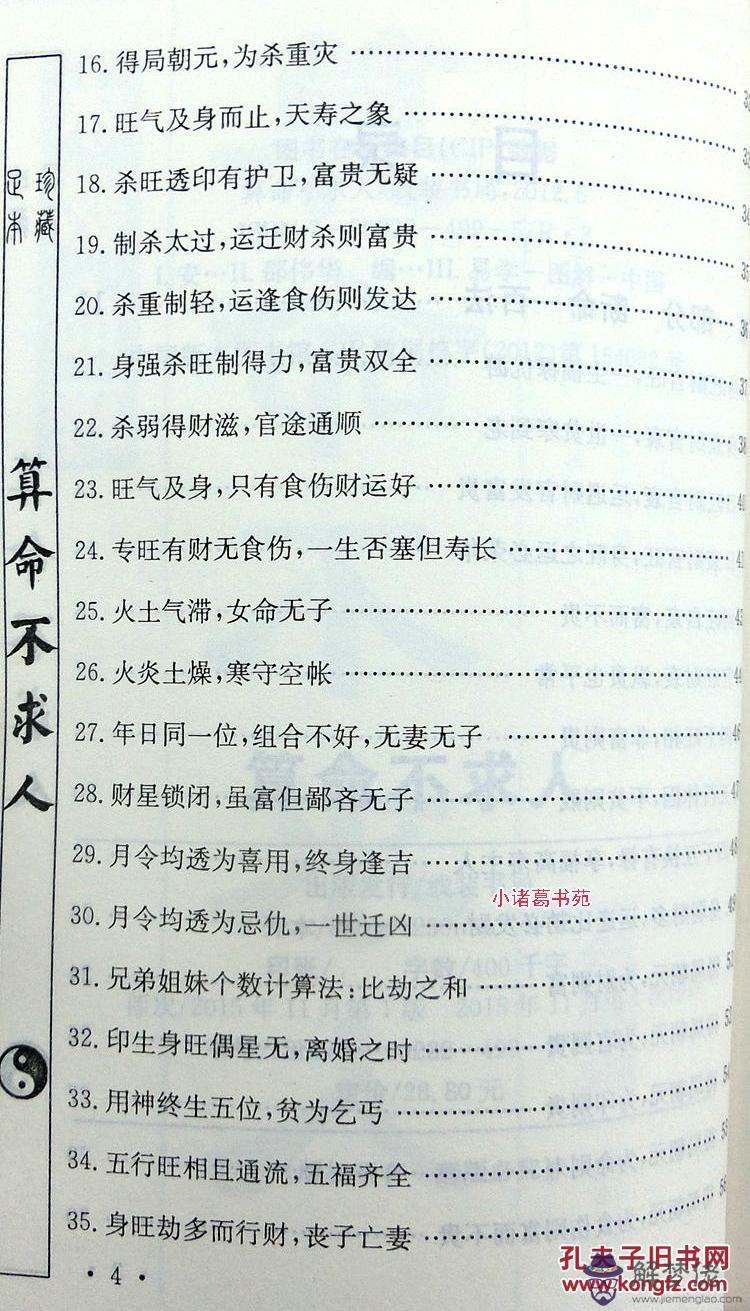 珍藏
足本
算命不求人
16. 得局朝元，为杀重灾
17. 旺气及身而止，夭寿之象
18. 杀旺透印有护卫，富贵无疑
19. 制杀太过，运迁财杀则富贵
20. 杀重制轻，运逢食伤则发达
21. 身强杀旺制得力，富贵双全
22. 杀弱得财滋，官途通顺
23. 旺气及身，只有食伤财运好
24. 专旺有财无食伤，一生否塞但寿长
25. 火土气滞，女命无子
26. 火炎土燥，寒守空帐
27. 年日同一位，组合不好，无妻无子
28. 财星锁闭，虽富但鄙吝无子
29. 月令均透为喜用，终身逢吉
30. 月令均透为忌仇，一世迁凶
31. 兄弟姐妹个数计算法：比劫之和
32. 印生身旺偶星无，离婚之时
33. 用神终生五位，贫为乞丐
34. 五行旺相且通流，五福齐全
35. 身旺劫多而行财，丧子亡妻
· 4 ·
小诸葛书苑
孔夫子旧书网
www.kongfz.com
解梦佬
www.jiemenglao.com